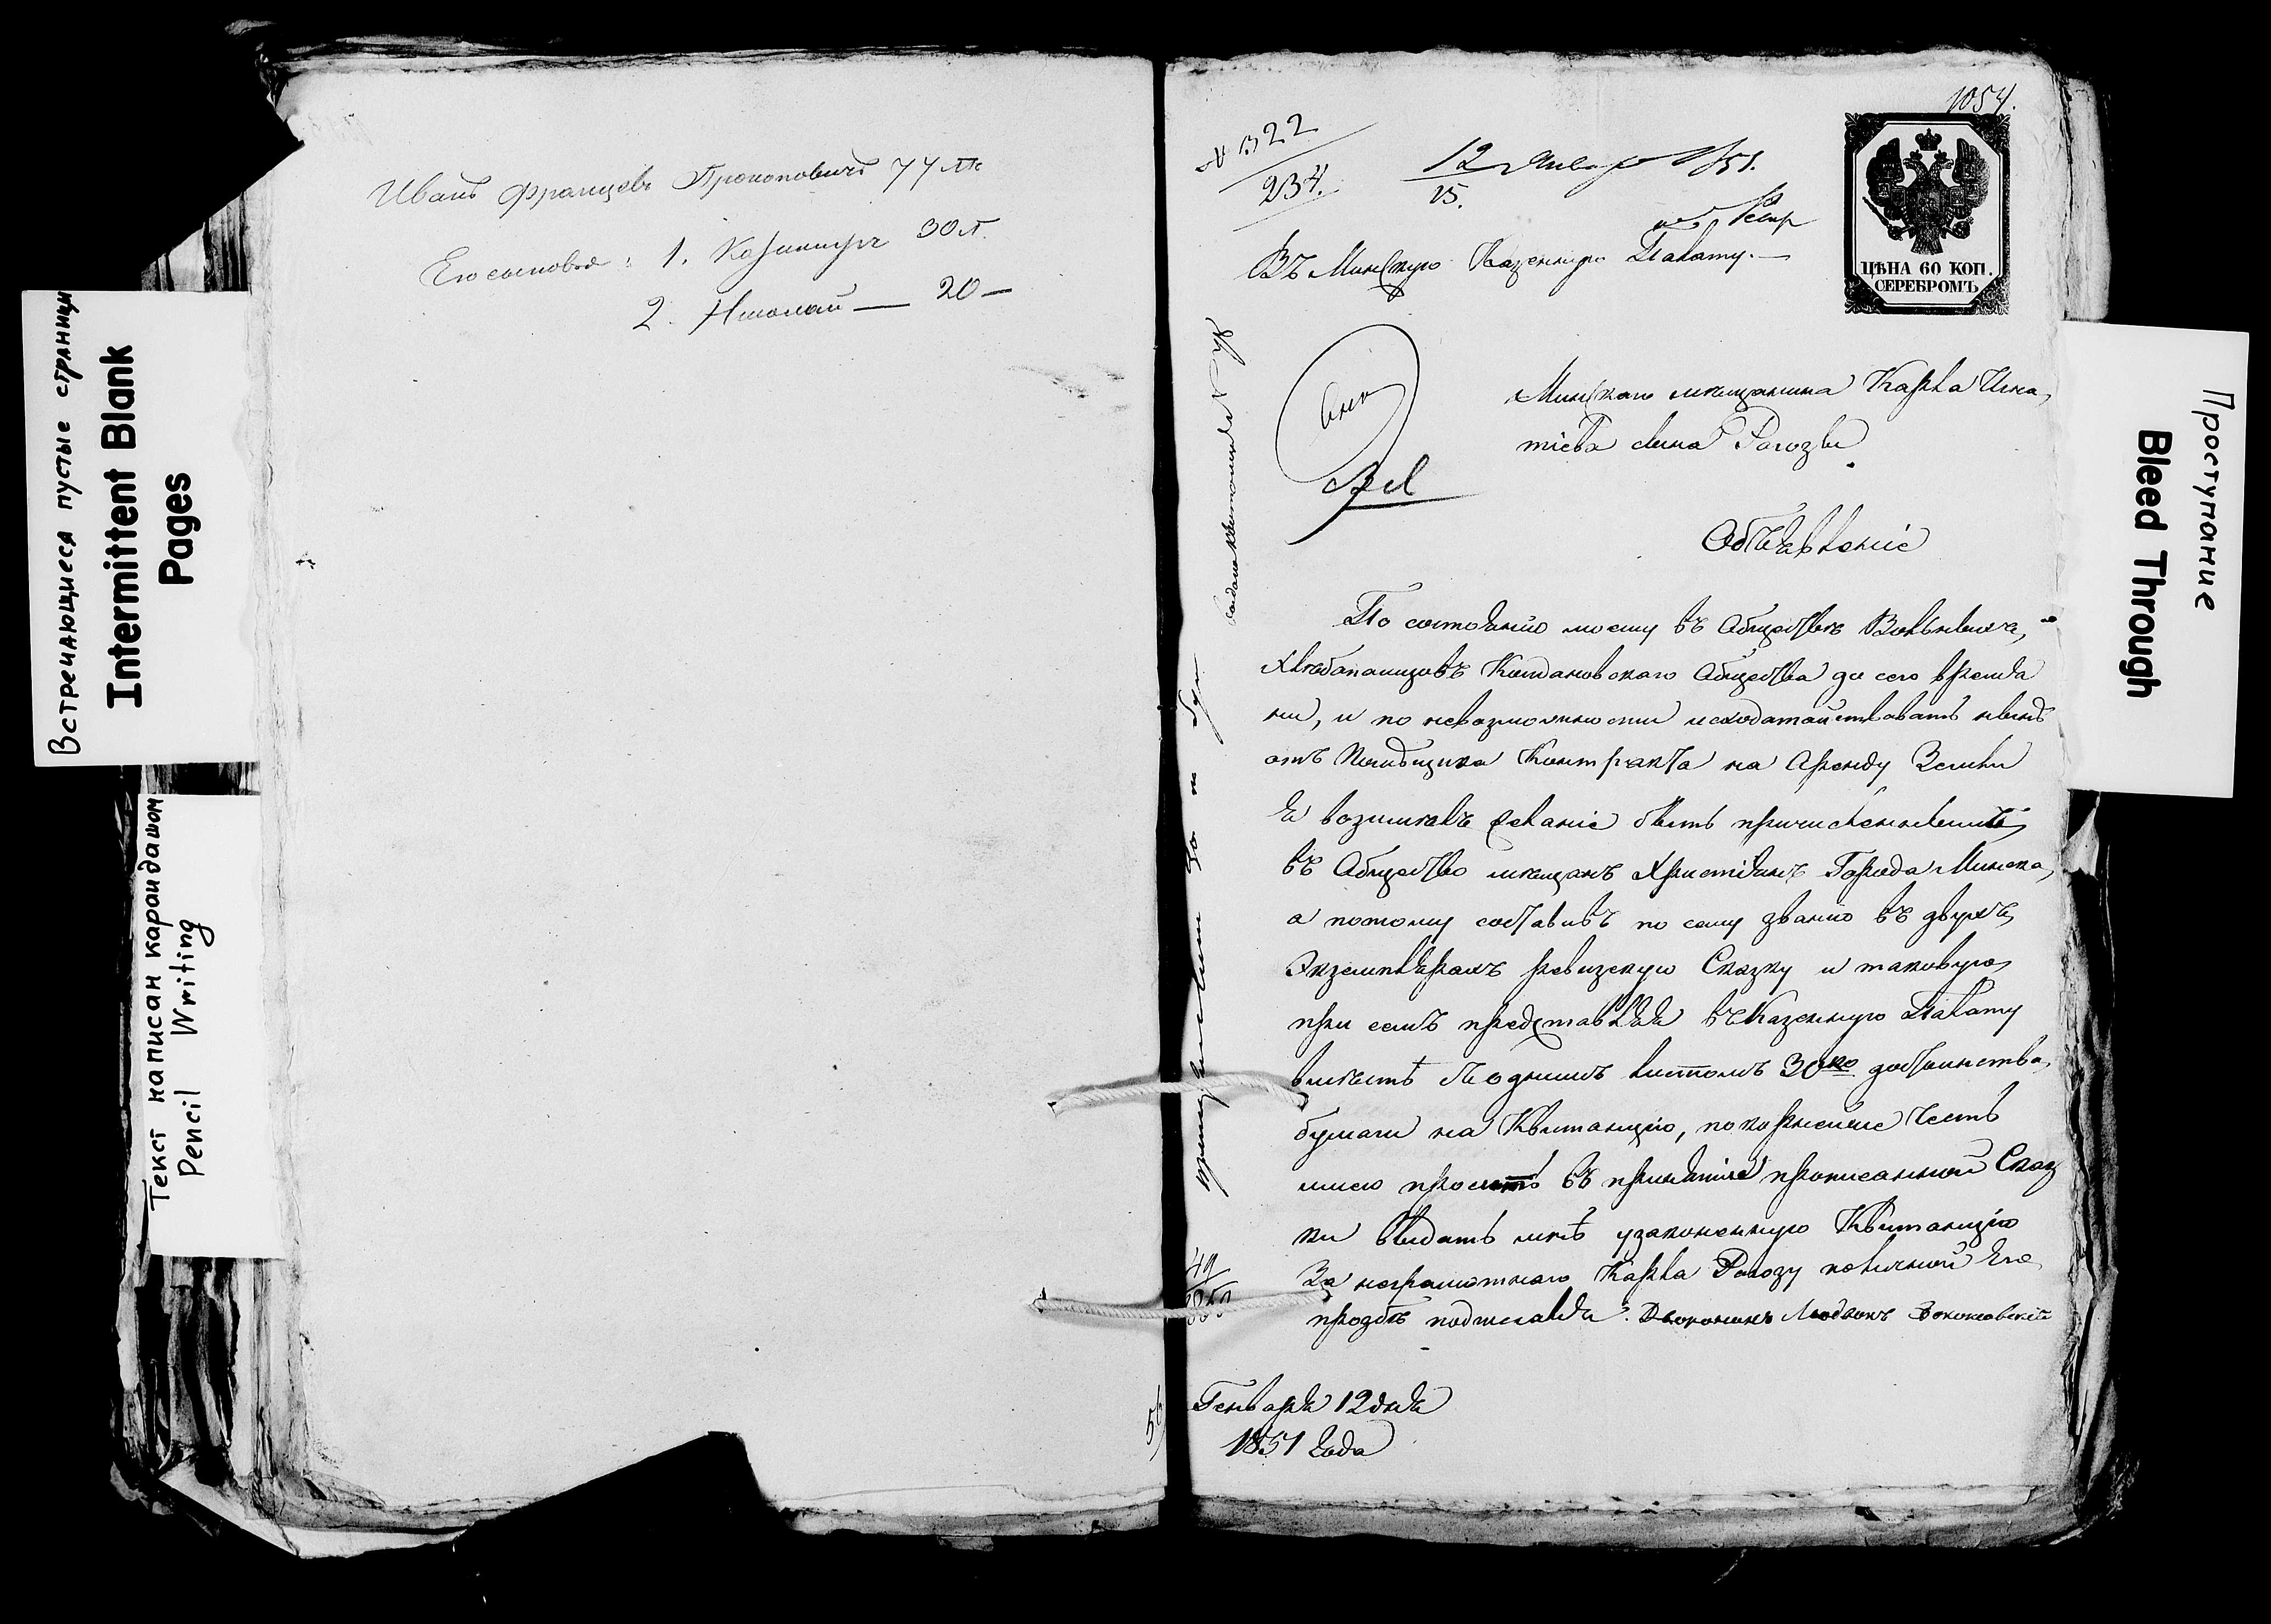 Встречающиеся пустые страницы
Intermittent Blank
Pages
Текст написан карандашом
Pencil Writing
Иванъ Францовъ Прокоповичъ 77 лѣ
Его сыновья: 1. Казимиръ 30 л.
2. Николай — 20 —
1054.
№ 322
234.
12 Января 1851.
15.
ЦѢНА 60 КОП.
СЕРЕБРОМЪ
Въ Минскую Казенную Палату.—
Минскаго мещанина Карла Игна
тіева сына Рогозы
Объявленіе
По состоянію моему въ Обществѣ Вольныхъ
Хлебопашцовъ Койдановскаго Общества до сего время
ни, и по невозможности исходатайствовать нынѣ
отъ Помѣщика Контракта на Аренду Земли
Я возимелъ желаніе быть причисленнымъ
въ Общество мещанъ Христіянъ Города Минска,
а потому составивъ по сему званію въ двухъ
Экземплярахъ ревизскую Сказку и таковую
при семъ представляя въ Казенную Палату
вместѣ съ однимъ листомъ 30ко достоинства
бумаги на Квитанцію, покорнейше честь
имею просить въ принятіи прописанной Сказ
ки выдать мнѣ узаконенную Квитанцію
За неграмотнаго Карла Рогозу по личной Его
прозбѣ подписалъ Дворянинъ Людвикъ
Генваря 12 дня
1851 года
Проступание
Bleed Through